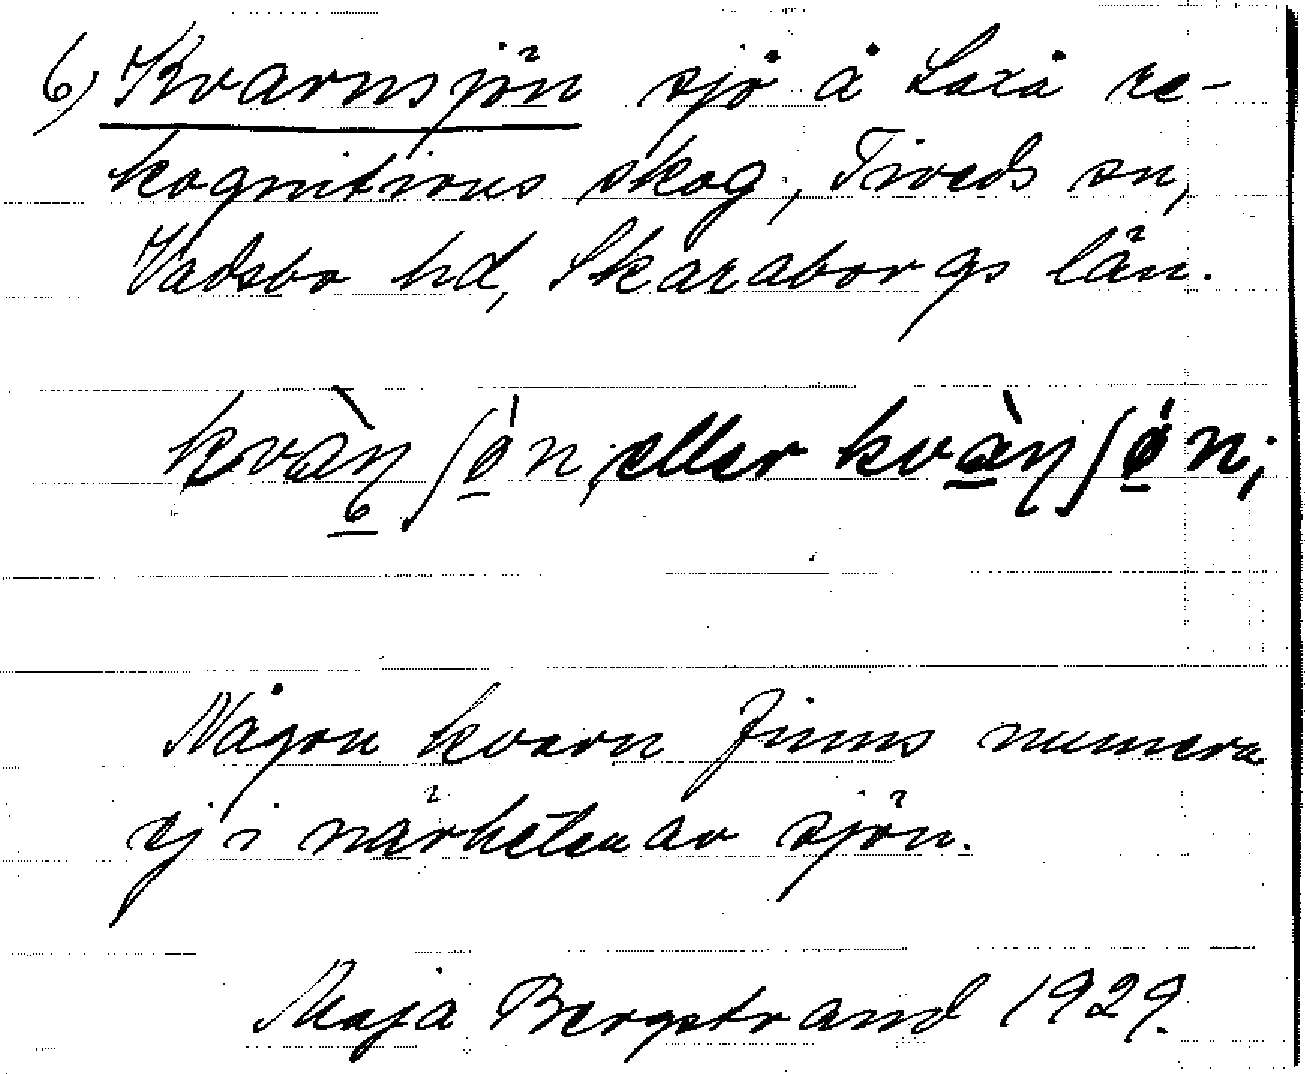 6) Kvarnsjön sjö å Laxå re-
kognitions skog, Tiveds sn,
Vadsbo hd, Skaraborgs län.
eller
Någon kvarn finns numera
ej i närheten av sjön.
Maja Bergstrand 1929.